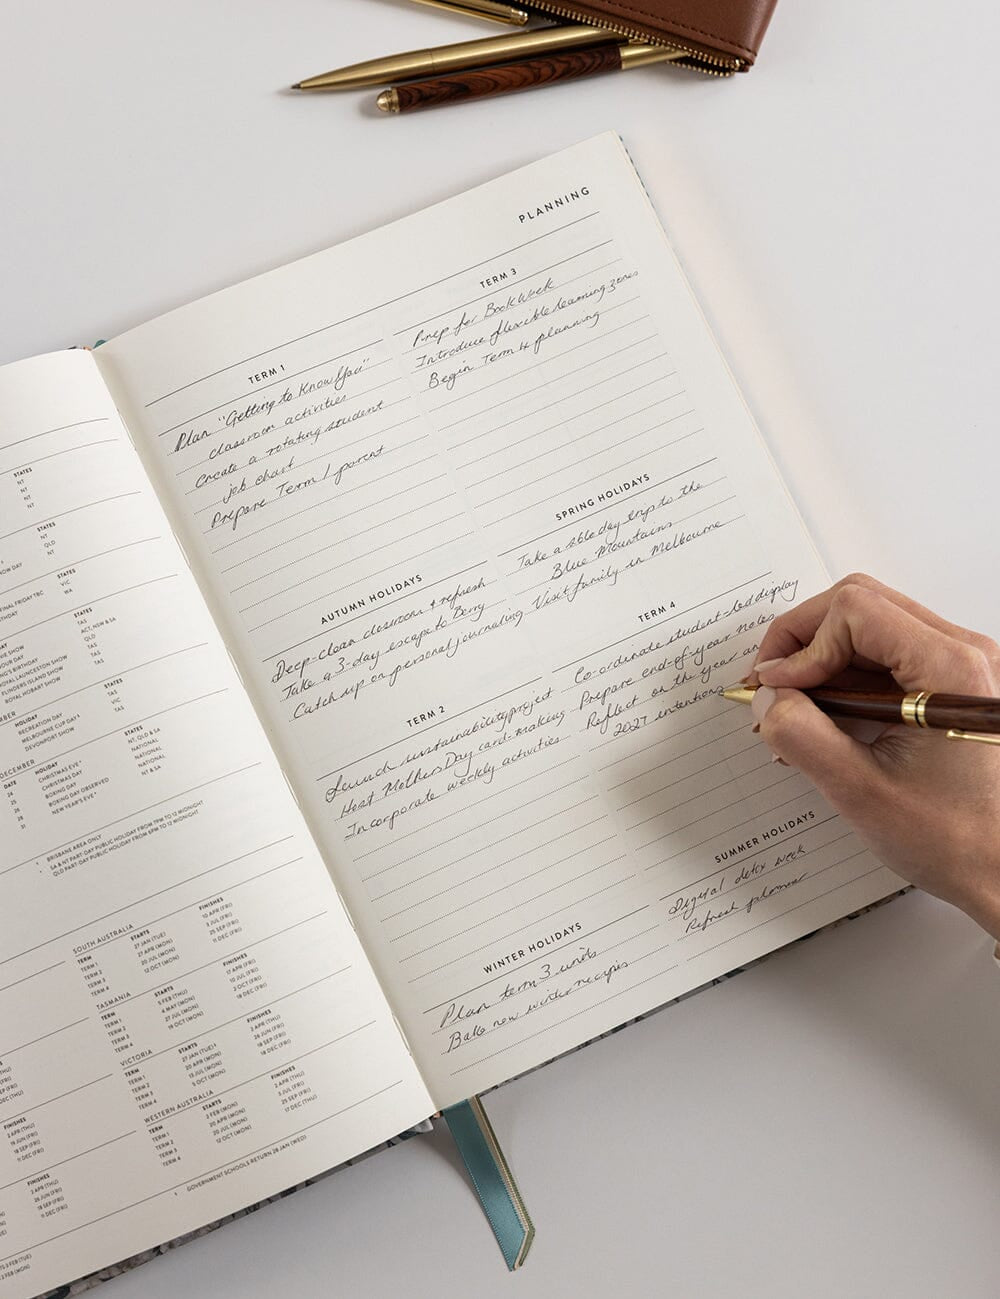 STATES
NT
NT
NT
NT
STATES
NT
QLD
NT
STATES
VIC
WA
STATES
TAS
ACT, NSW & SA
QLD
TAS
TAS
TAS
ROYAL LAUNCESTON SHOW
FLINDERS ISLAND SHOW
ROYAL HOBART SHOW
HOLIDAY
RECREATION DAY
MELBOURNE CUP DAY
DEVONPORT SHOW
STATES
TAS
VIC
TAS
DECEMBER
DATE HOLIDAY STATES
24 CHRISTMAS EVE* NT, QLD & SA
25 CHRISTMAS DAY NATIONAL
26 BOXING DAY NATIONAL
28 BOXING DAY OBSERVED NATIONAL
31 NEW YEAR'S EVE* NT & SA
BRISBANE AREA ONLY
SA & NT PART-DAY PUBLIC HOLIDAY FROM 7PM TO 12 MIDNIGHT
QLD PART-DAY PUBLIC HOLIDAY FROM 6PM TO 12 MIDNIGHT
SOUTH AUSTRALIA
TERM STARTS FINISHES
TERM 1 27 JAN (TUE) 10 APR (FRI)
TERM 2 27 APR (MON) 3 JUL (FRI)
TERM 3 20 JUL (MON) 25 SEP (FRI)
TERM 4 12 OCT (MON) 11 DEC (FRI)
TASMANIA
TERM STARTS FINISHES
TERM 1 5 FEB (THU) 17 APR (FRI)
TERM 2 4 MAY (MON) 10 JUL (FRI)
TERM 3 27 JUL (MON) 2 OCT (FRI)
TERM 4 19 OCT (MON) 18 DEC (FRI)
VICTORIA
TERM STARTS FINISHES
TERM 1 27 JAN (TUE) 2 APR (THU)
TERM 2 20 APR (MON) 26 JUN (FRI)
TERM 3 13 JUL (MON) 18 SEP (FRI)
TERM 4 5 OCT (MON) 18 DEC (FRI)
WESTERN AUSTRALIA
TERM STARTS FINISHES
TERM 1 2 FEB (MON) 2 APR (THU)
TERM 2 20 APR (MON) 3 JUL (FRI)
TERM 3 20 JUL (MON) 25 SEP (FRI)
TERM 4 12 OCT (MON) 17 DEC (THU)
GOVERNMENT SCHOOLS RETURN 28 JAN (WED)
PLANNING
TERM 1
Plan "Getting to Know You"
classroom activities
Create a rotating student
job chart
Prepare Term 1 parent
AUTUMN HOLIDAYS
Deep-clean classroom & refresh
Take a 3-day escape to Berry
Catch up on personal journaling
TERM 2
Launch sustainability project
Host Mothers Day card-making
Incorporate weekly activities
WINTER HOLIDAYS
Plan term 3 units
Bake new winter recipes
TERM 3
Prep for Book Week
Introduce flexible learning zones
Begin Term 4 planning
SPRING HOLIDAYS
Take a day trip to the
Blue Mountains
Visit family in Melbourne
TERM 4
Co-ordinate student-led display
Prepare end-of-year notes
Reflect on the year an
2027 intentions
SUMMER HOLIDAYS
Digital detox week
Refresh planner